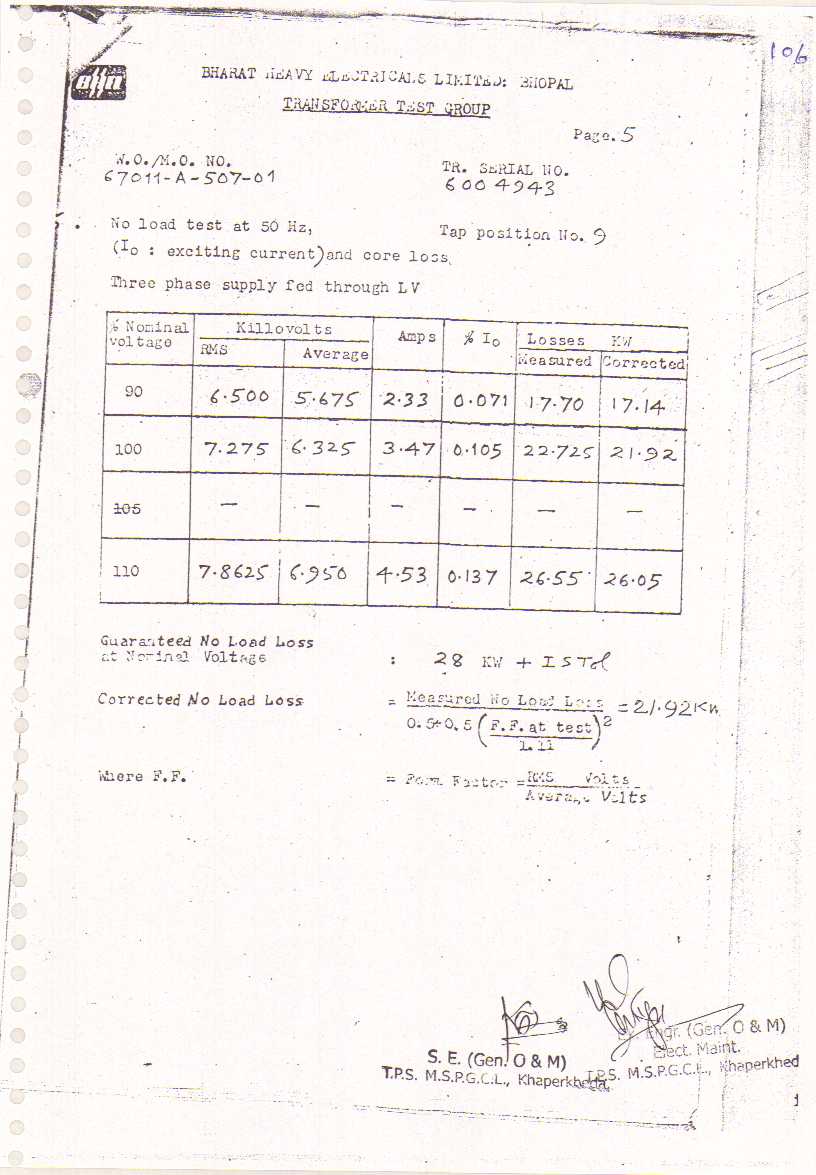 106
BHARAT HEAVY ELECTRICALS LIMITED: BHOPAL
TRANSFORMER TEST GROUP
Page. 5
W.O./M.O. NO.
67011-A-507-01
TR. SERIAL NO.
6004943
No load test at 50 Hz,
Tap position No. 9
(Io : exciting current) and core loss.
Three phase supply fed through LV
% Nominal voltage Killovolts Amps % Io Losses KW
RMS Average Measured Corrected
90 6.500 5.675 2.33 0.071 17.70 17.14
100 7.275 6.325 3.47 0.105 22.725 21.92
105 — — — — — —
110 7.8625 6.950 4.53 0.137 26.55 26.05
Guaranteed No Load Loss
at Nominal Voltage : 28 KW + IS Tol
Corrected No Load Loss = Measured No Load Loss = 21.92 KW
0.5+0.5 (F.F. at test)2
1.11
Where F.F. = Form Factor = RMS Volts
Average Volts
S. E. (Gen. O & M)
T.P.S. M.S.P.G.C.L., Khaperkheda
Engr. (Gen. O & M)
Elect. Maint.
T.P.S. M.S.P.G.C.L., Khaperkhed